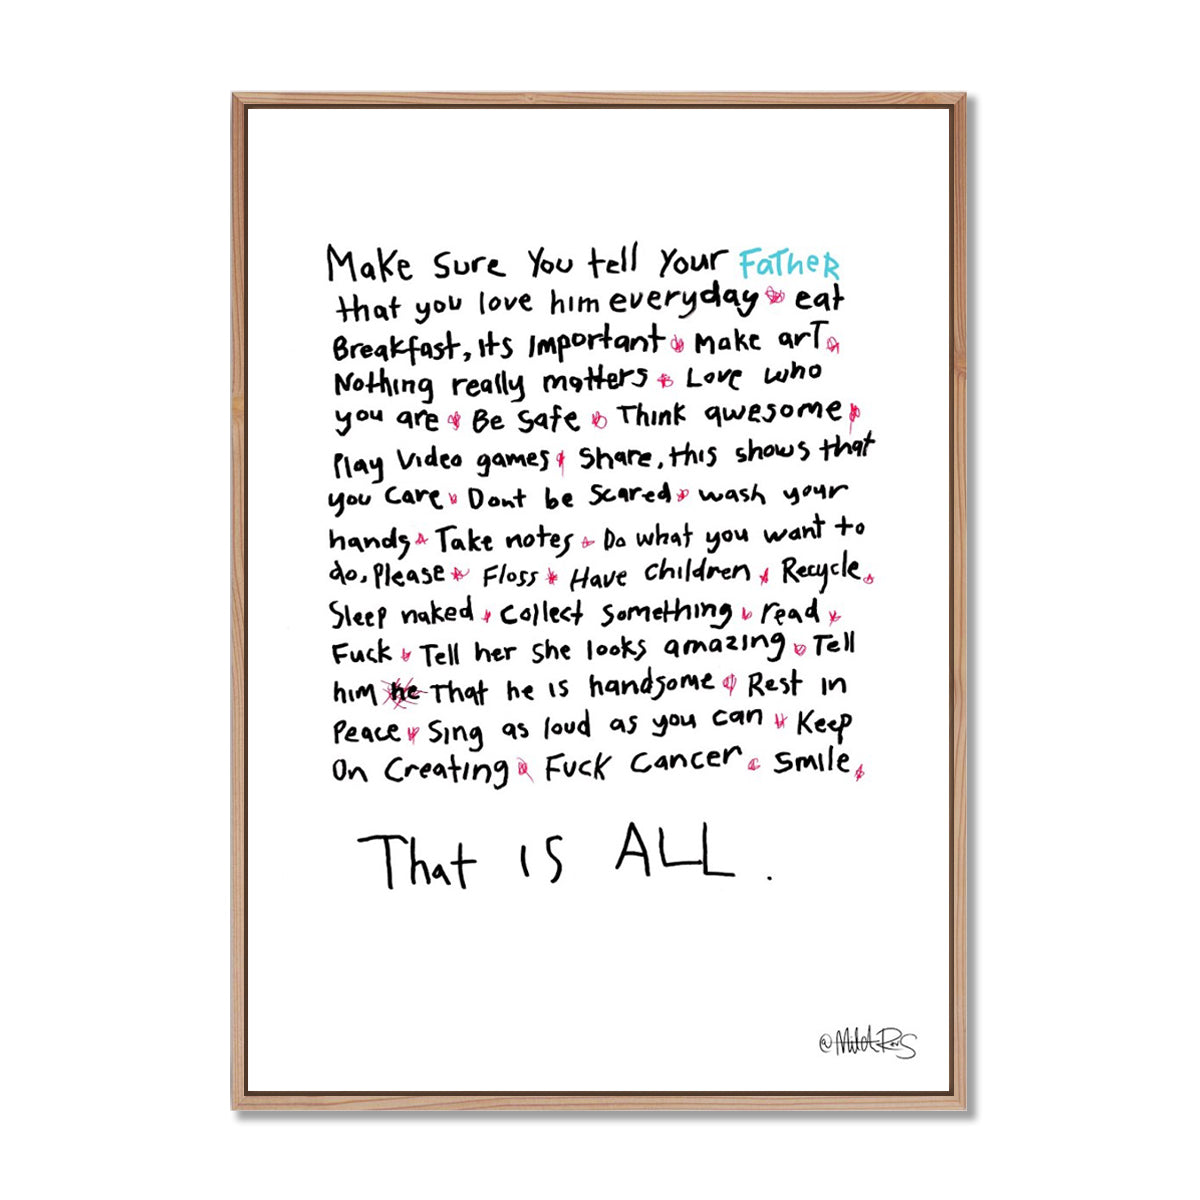 Make Sure You tell Your Father
that you love him everyday eat
Breakfast, its important make art
Nothing really matters Love who
you are Be safe Think awesome
Play Video games Share, this shows that
you care Dont be scared wash your
hands Take notes Do what you want to
do, please Floss Have children Recycle
Sleep naked Collect something read
Fuck Tell her she looks amazing Tell
him he That he is handsome Rest in
Peace Sing as loud as you can Keep
On Creating Fuck Cancer Smile
That IS ALL.